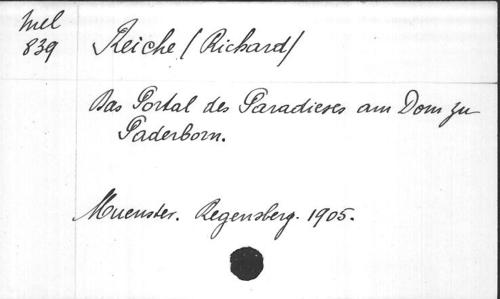 Mel
839
Reiche (Richard)
Das Portal des Paradieses am Dom zu
Paderborn.
Muenster. Regensberg. 1905.